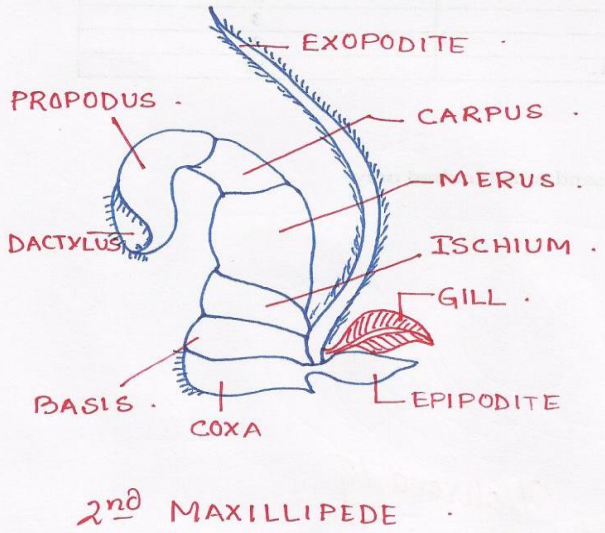 EXOPODITE
PROPODUS .
CARPUS .
MERUS .
DACTYLUS
ISCHIUM .
GILL .
BASIS .
EPIPODITE
COXA
2nd MAXILLIPEDE .